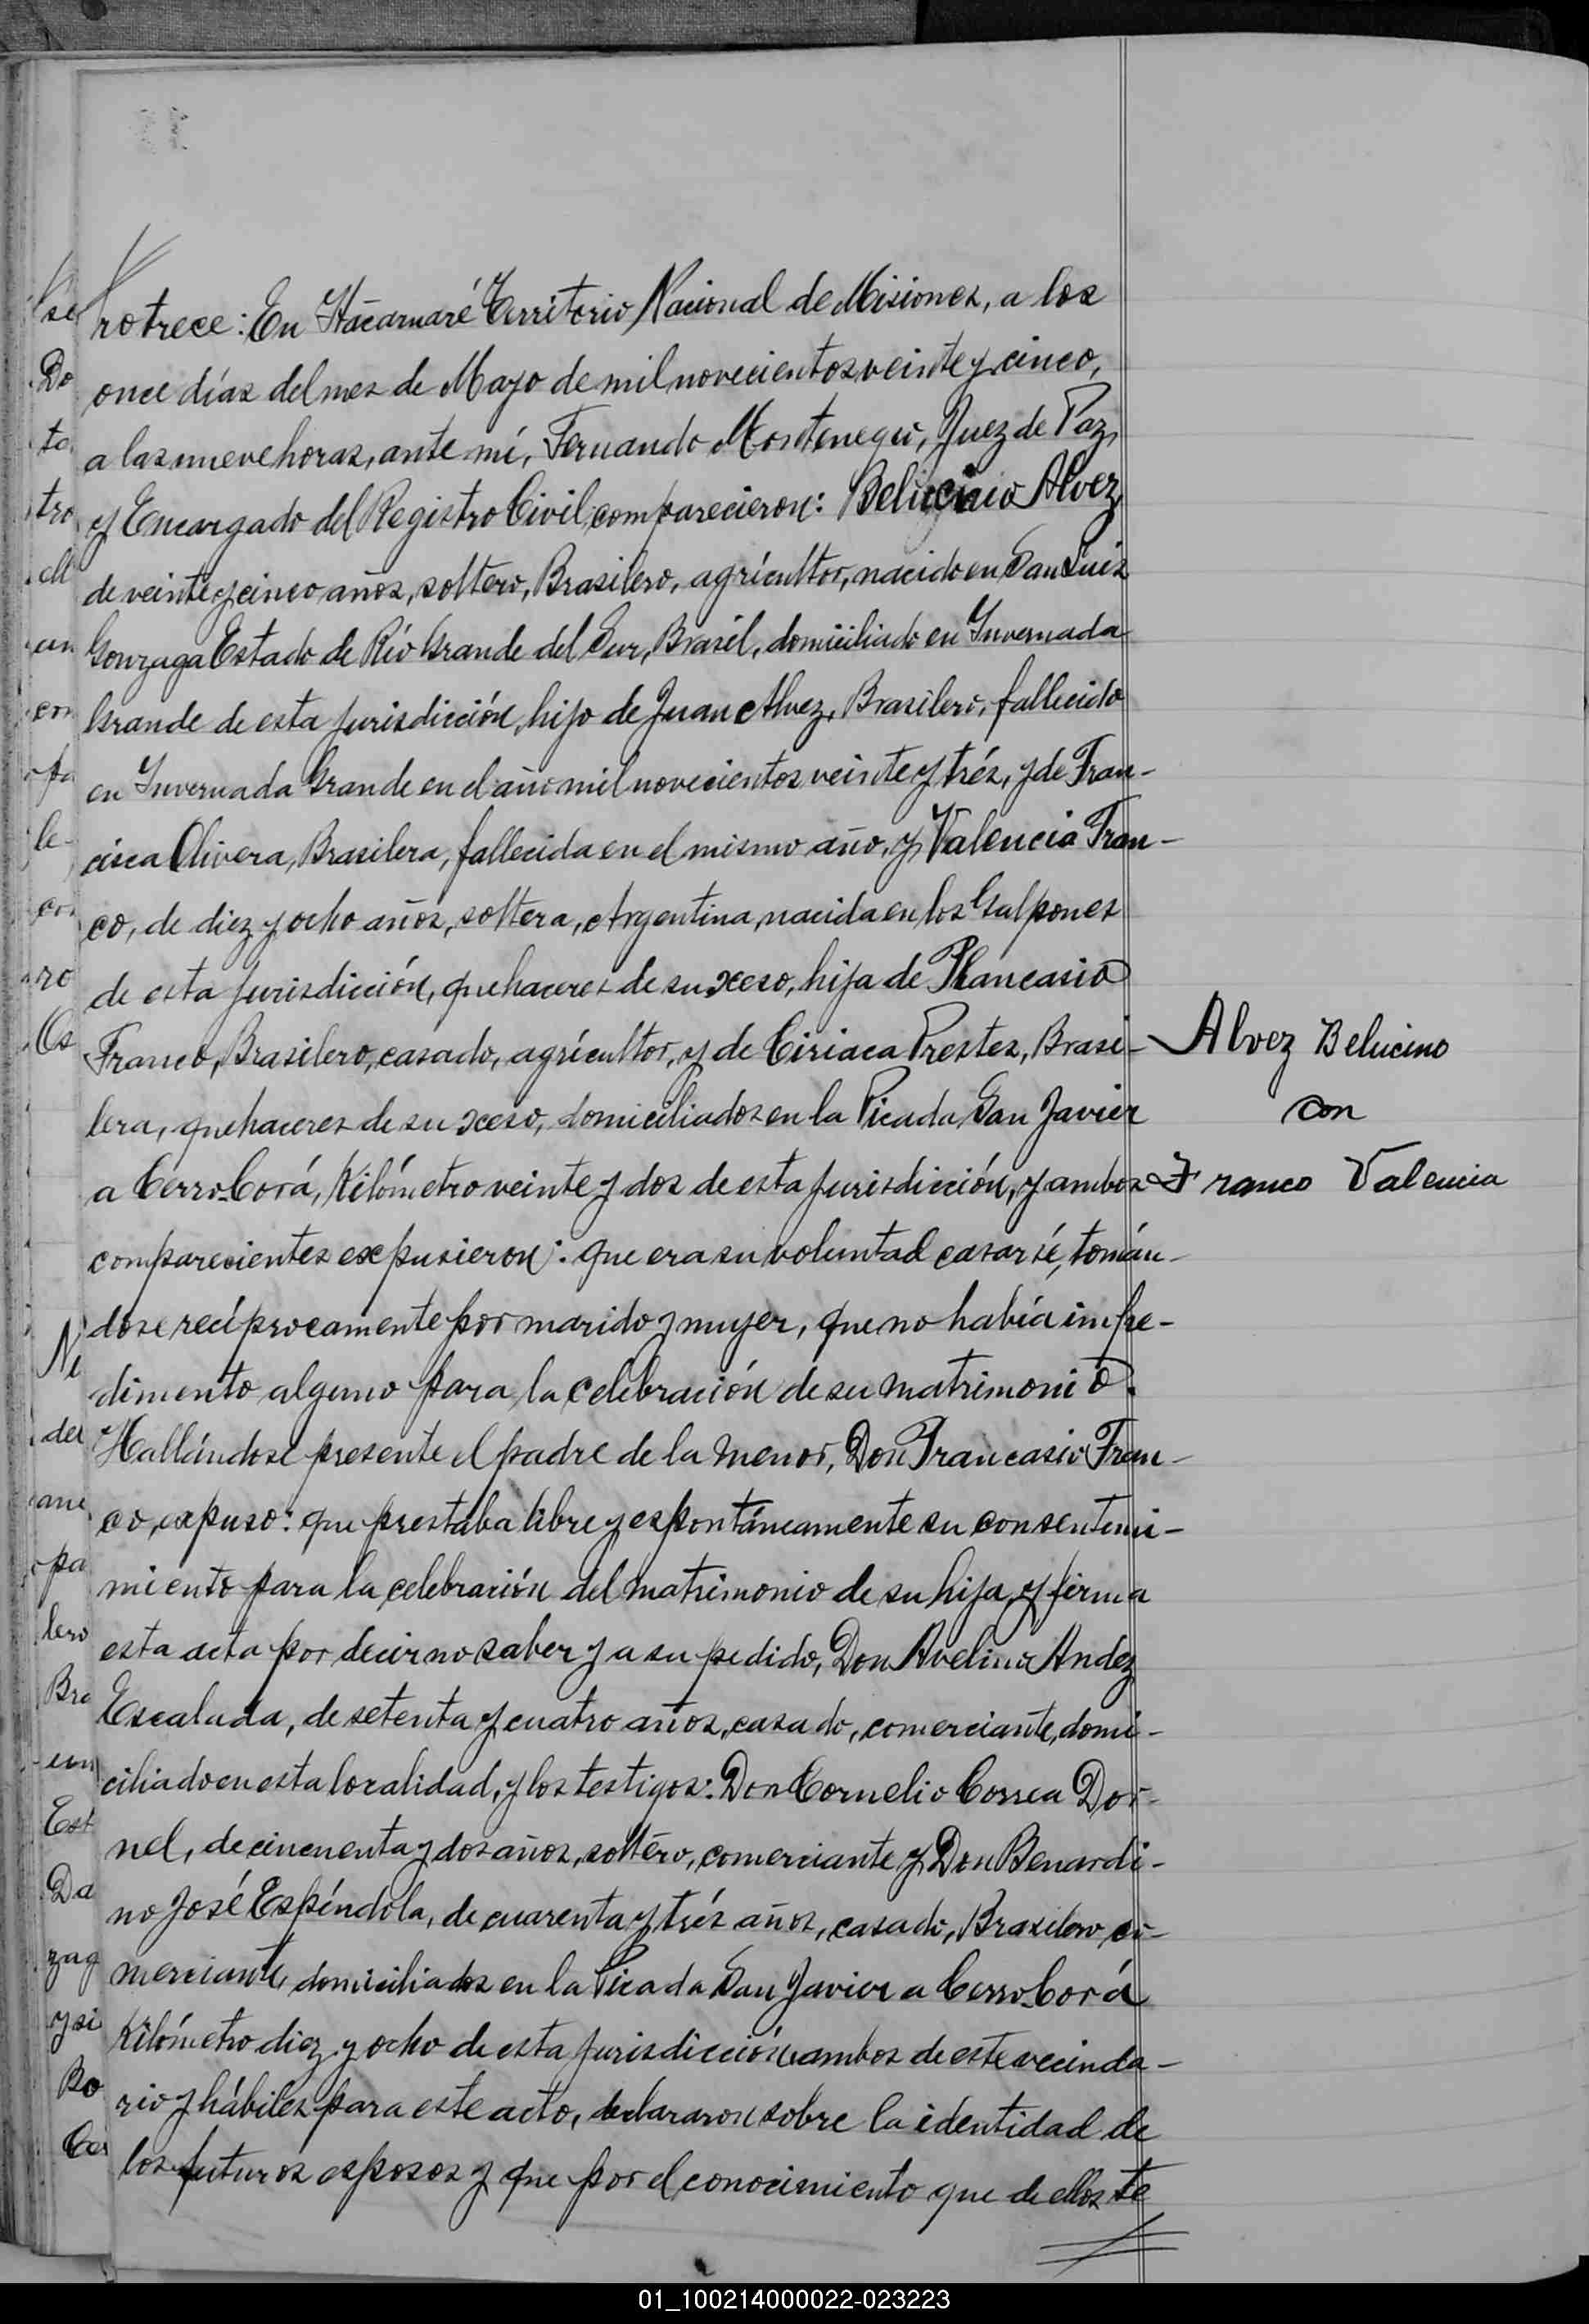 rotrece: En Itacaruaré Territorio Nacional de Misiones, a los
once días del mes de Mayo de mil novecientos veinte y cinco,
a las nueve horas, ante mí, Fernando Montenegro, Juez de Paz,
y Encargado del Registro Civil comparecieron: Belucino Alvez
de veinte y cinco años, soltero, Brasilero, agrícultor, nacido en San Luis
Gonzaga Estado de Río Grande del Sur, Brasil, domiciliado en Invernada
Grande de esta jurisdicción, hijo de Juan Alvez, Brasilero, fallecido
en Invernada Grande en el año mil novecientos veinte y trés, y de Fran-
cisca Olivera, Brasilera, fallecida en el mismo año, y Valencia Fran-
co, de diez y ocho años, soltera, Argentina, nacida en los Galpones
de esta jurisdicción, quehaceres de su xeso, hija de Plancasio
Franco, Brasilero, casado, agrícultor, y de Ciriaca Prestes, Brasi-
lera, quehaceres de su xeso, domiciliados en la Picada San Javier
a Cerro-Corá, Kilómetro veinte y dos de esta jurisdicción, y ambos
comparecientes expusieron: que era su voluntad casarsé, tomán-
dose recíprocamente por marido y mujer, que no había impe-
dimento alguno para la celebración de su matrimonio.
Hallándose presente el padre de la menor, Don Francasio Fran-
co, expuso: que prestaba libre y espontáneamente su consentimi-
miento para la celebración del matrimonio de su hija, y firma
esta acta por decir no saber y a su pedido, Don Avelino Andez
Escalada, de setenta y cuatro años, casado, comerciante, domi-
ciliado en esta localidad, y los testigos: Don Cornelio Correa Dor-
nel, de cincuenta y dos años, soltero, comerciante y Don Benardi-
no José Espíndola, de cuarenta y trés años, casado, Brasilero, co-
merciante, domiciliados en la Picada San Javier a Cerro-Corá
Kilómetro diez y ocho de esta jurisdicción, ambos de este vecinda-
rio y hábiles para este acto, declararon sobre la identidad de
los futuros esposos y que por el conocimiento que de ellos te
Alvez Belucino
con
Franco Valencia
01_100214000022-023223